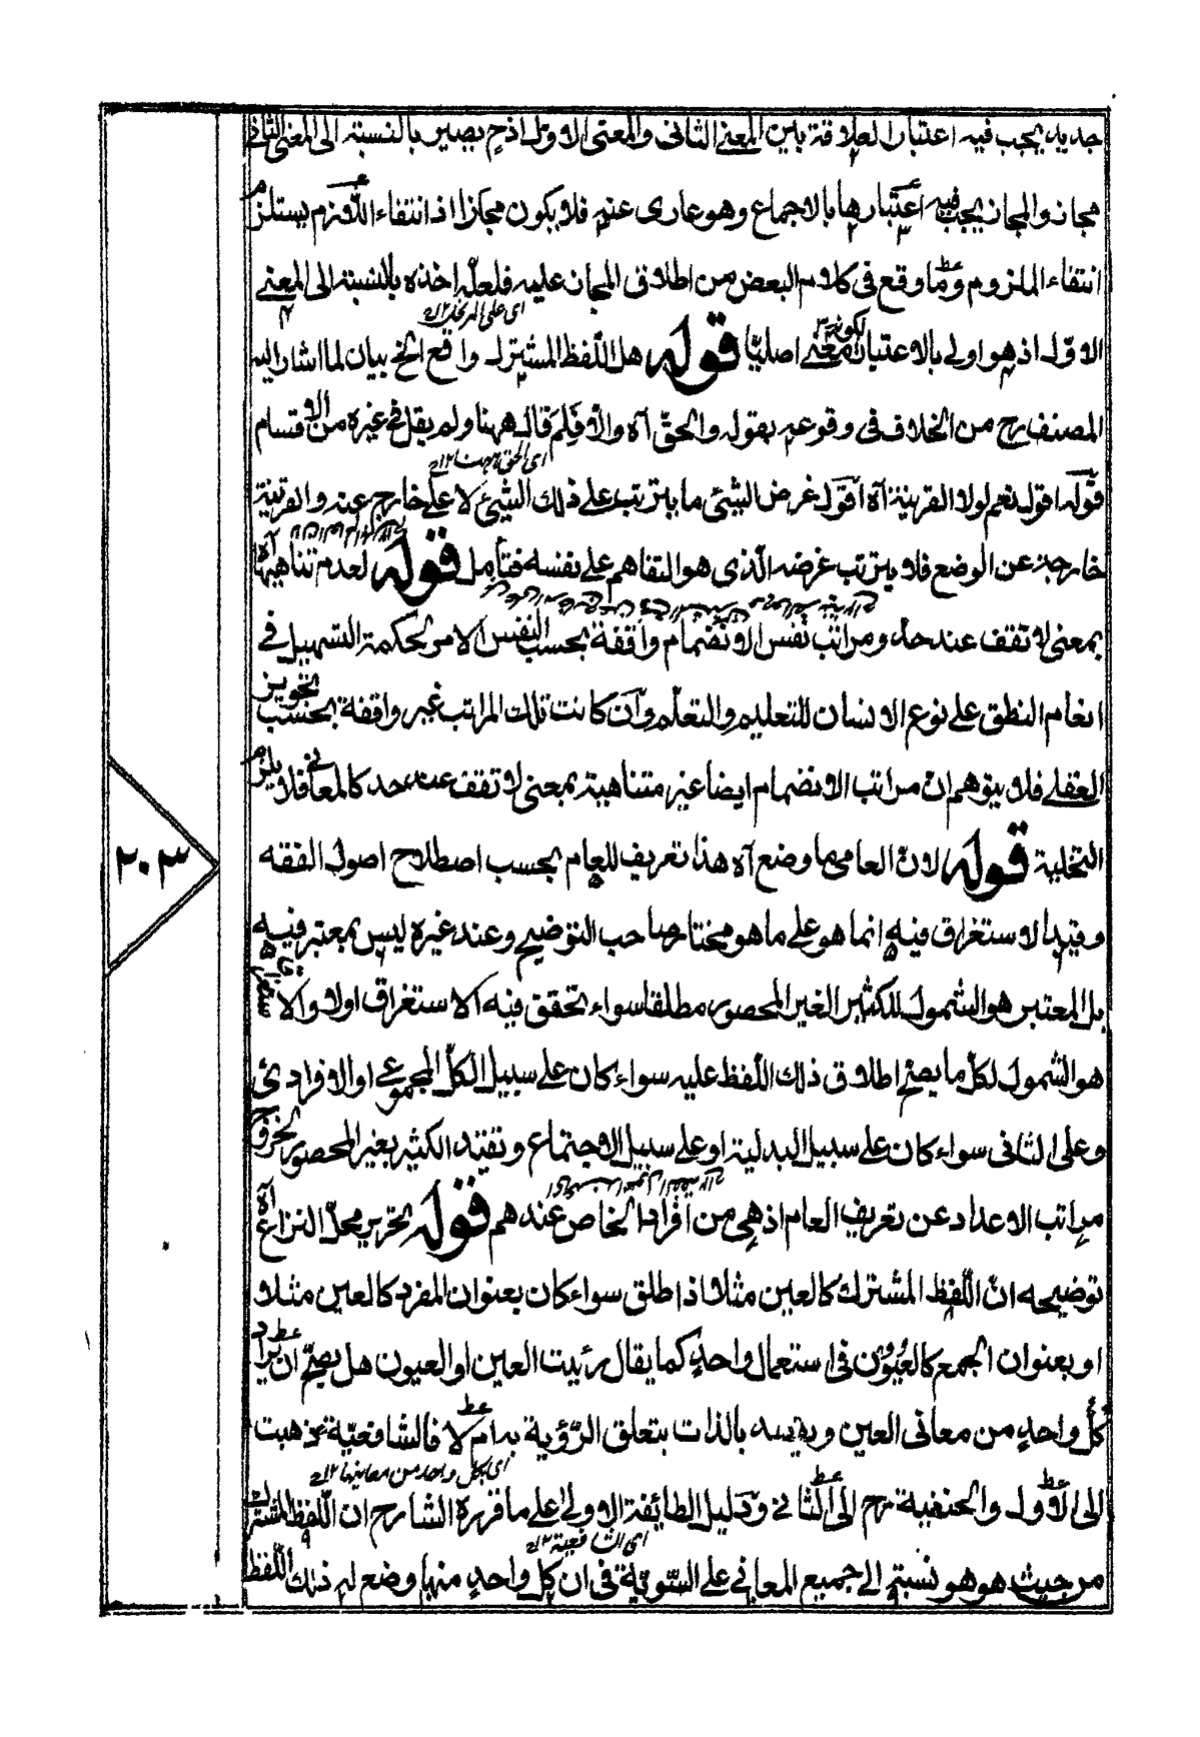 جديد يجب فيه اعتبار العلاقة بين المعنى الثانى والمعنى الاول اذ ح يصير بالنسبة الى المعنى الثانى
مجاز والمجاز يجب فيه اعتبارها بالاجماع وهو عارى عنه فلا يكون مجازا اذ انتفاء اللازم يستلزم
انتفاء الملزوم وما وقع فى كلام البعض من اطلاق المجاز عليه فلعله اخذه بالنسبة الى المعنى
الاول اذ هو اولى بالاعتبار لكونه معنى اصليا قوله هل اللفظ المشترك واقع الخ بيان لما اشار اليه
المصنف رح من الخلاف فى وقوعه بقوله والحق آه والا فلم قال ههنا ولم يقل فى غيره من الاقسام
قوله اقول نعم لولا القرينة آه اقول غرض الشئ ما يترتب على ذلك الشئ لا على خارج عنه والقرينة
خارجة عن الوضع فلا يترتب غرضه الذى هو التفاهم على نفسه فتأمل قوله لعدم تناهيها آه
بمعنى لا تقف عند حد ومراتب نفس الانضمام واقفة بحسب النفس الامر لحكمة التسهيل فى
انعام النطق على نوع الانسان للتعليم والتعلم وان كانت تلك المراتب غير واقفة بحسب التجويز
العقلى فلا يتوهم ان مراتب الانضمام ايضا غير متناهية بمعنى لا تقف عند حد كالمعانى فلا يلزم
التخلية قوله لان العام ما وضع آه هذا تعريف للعام بحسب اصطلاح اصول الفقه
وقيد الاستغراق فيه انما هو على ما هو مختار صاحب التوضيح وعند غيره ليس بمعتبر فيه
بل المعتبر هو الشمول للكثير الغير المحصور مطلقا سواء تحقق فيه الاستغراق اولا والاستغراق
هو الشمول لكل ما يصح اطلاق ذلك اللفظ عليه سواء كان على سبيل الكل المجموعى او الافرادى
وعلى الثانى سواء كان على سبيل البدلية او على سبيل الاجتماع وتقييد الكثير بغير المحصور لخروج
مراتب الاعداد عن تعريف العام اذ هى من افراد الخاص عندهم قوله تحرير محل النزاع آه
توضيحه ان اللفظ المشترك كالعين مثلا اذا طلق سواء كان بعنوان المفرد كالعين مثلا
او بعنوان الجمع كالعيون فى استعمال واحد كما يقال رئيت العين او العيون هل يصح ان يراد
كل واحد من معانى العين ويقصد بالذات بتعلق الرؤية به ام لا فالشافعية رح ذهبت
اى بكل واحد من معانيها ١٢
الى الاول والحنفية رح الى الثانى ودليل الطائفة الاولى على ما قرره الشارح ان اللفظ المشترك
اى الشافعية ١٢
من حيث هو هو نسبته الى جميع المعانى على السوية فى ان كل واحد منها وضع له ذلك اللفظ
٢٠٣